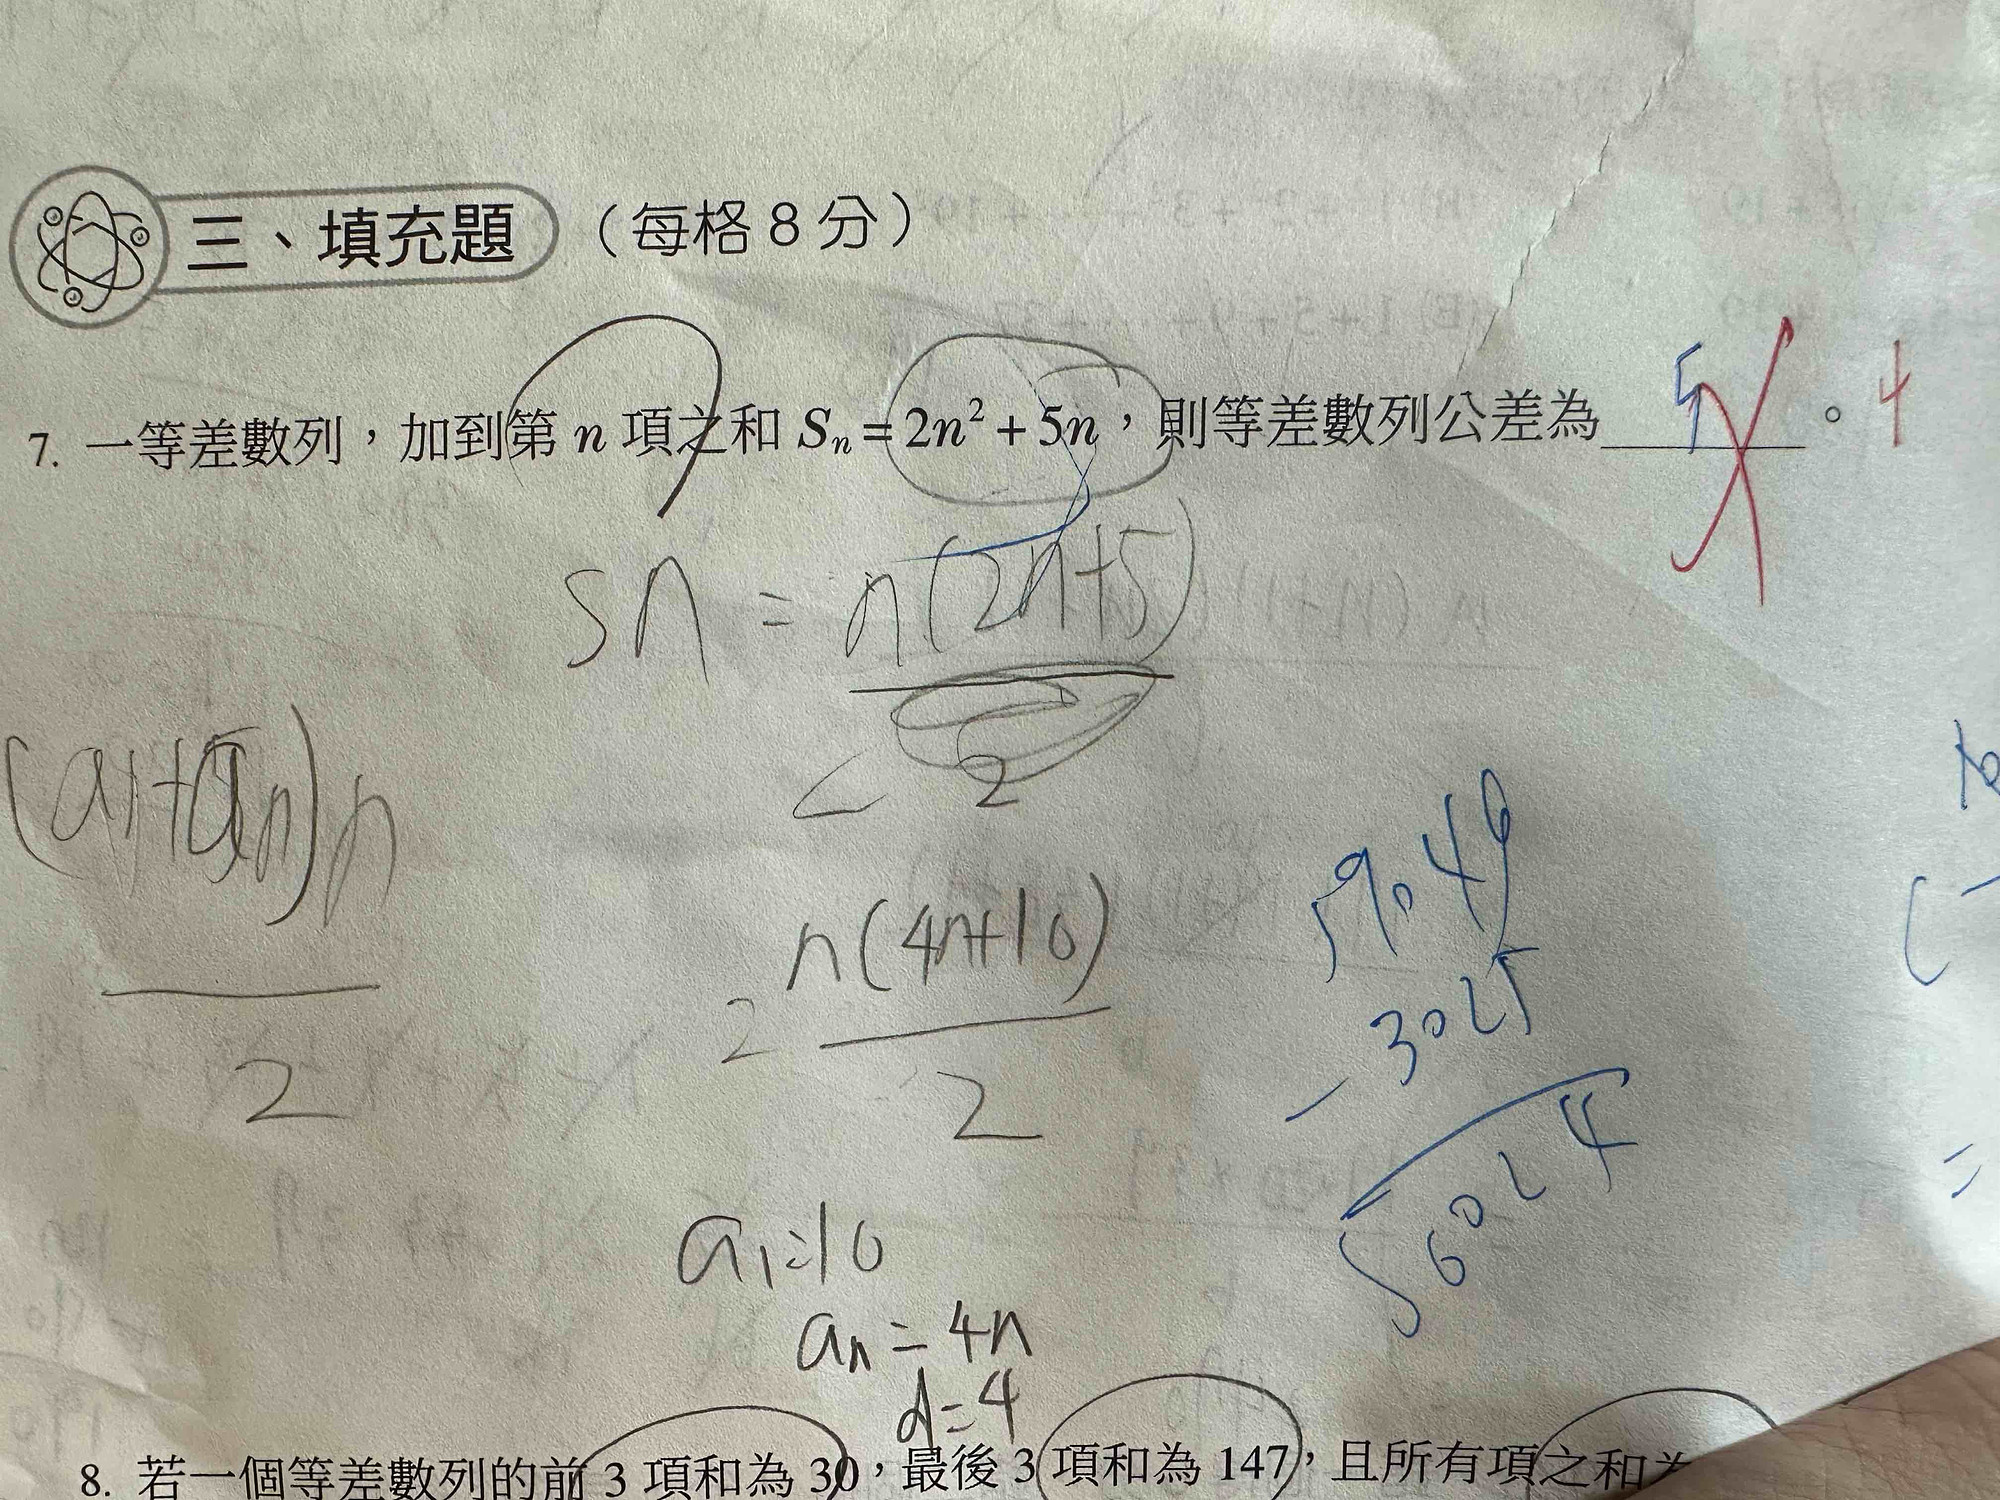 三、填充題（每格8分）
7. 一等差數列，加到第 n 項之和 Sₙ = 2n² + 5n，則等差數列公差為 5 。 4
Sn = n(2n+5)
2
(a1+an)n
2
n(4n+10)
2
59049
-3025
56024
a1=10
an=4n
d=4
=
8. 若一個等差數列的前 3 項和為 30，最後 3 項和為 147，且所有項之和為